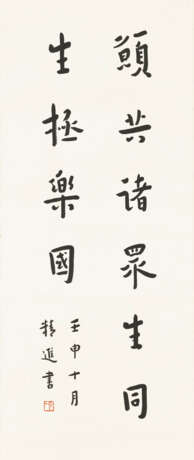 願共诸眾生同
生極樂國
壬申十月
精進書